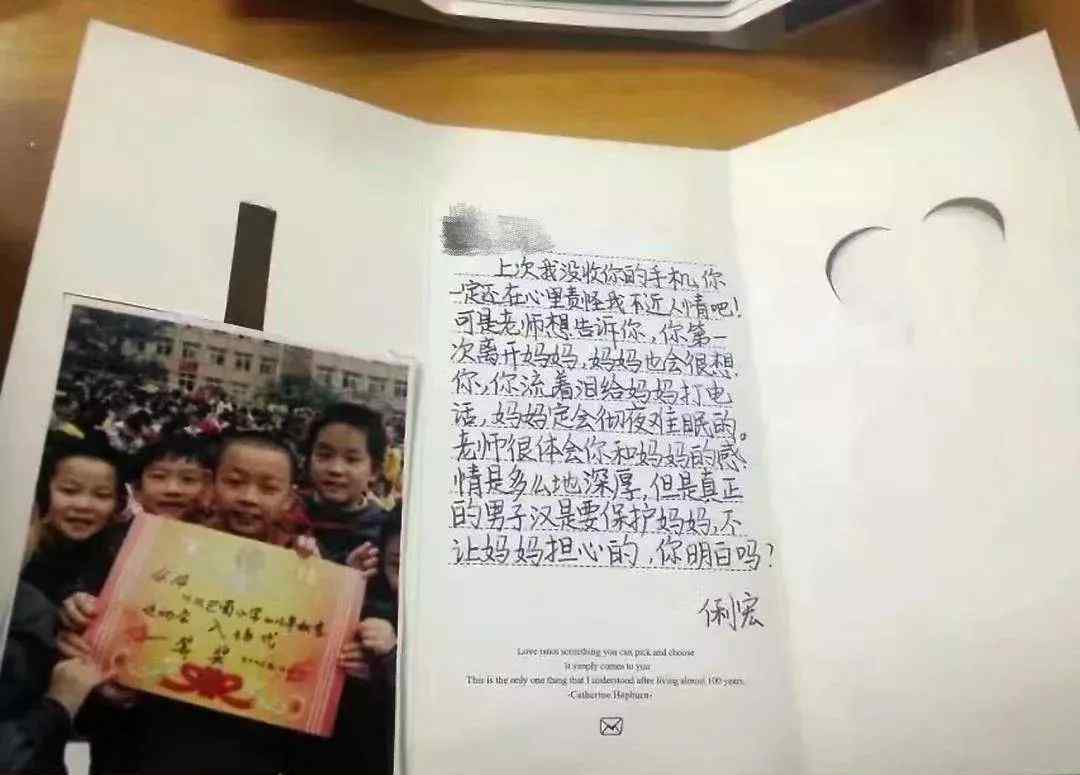 上次我没收你的手机,你
一定还在心里责怪我不近人情吧!
可是老师想告诉你,你第一
次离开妈妈,妈妈也会很想
你,你流着泪给妈妈打电
话,妈妈定会彻夜难眠的。
老师很体会你和妈妈的感
情是多么地深厚,但是真正
的男子汉是要保护妈妈,不
让妈妈担心的,你明白吗?
俐宏
Love is not something you can pick and choose
it simply comes to you
This is the only one thing that I understood after living almost 100 years.
-Catherine Hepburn-
小学
运动会入场式
一等奖